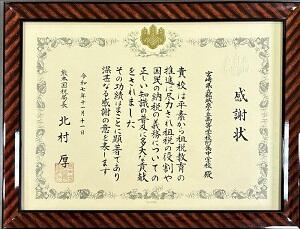 感謝状
宮崎県立都城泉ヶ丘高等学校附属中学校 殿
貴校は平素から租税教育の
推進に尽力され租税の役割や
国民の納税の義務についての
正しい知識の普及に多大な貢献
をされました
その功績はまことに顕著であり
深甚なる感謝の意を表します
令和七年十一月十一日
熊本国税局長
北村 厚